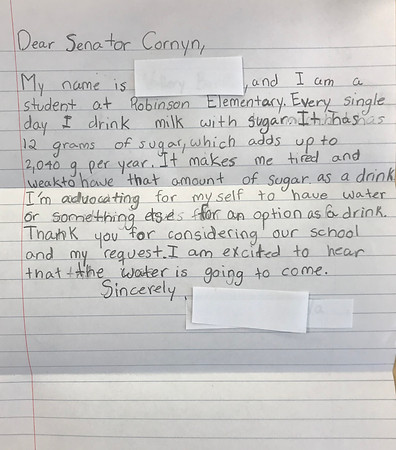 Dear Senator Cornyn,
My name is , and I am a
student at Robinson Elementary. Every single
day I drink milk with sugar. It has
12 grams of sugar, which adds up to
2,040 g per year. It makes me tired and
weak to have that amount of sugar as a drink
I'm advocating for my self to have water
or something else for an option as a drink.
Thank you for considering our school
and my request. I am excited to hear
that the water is going to come.
Sincerely,